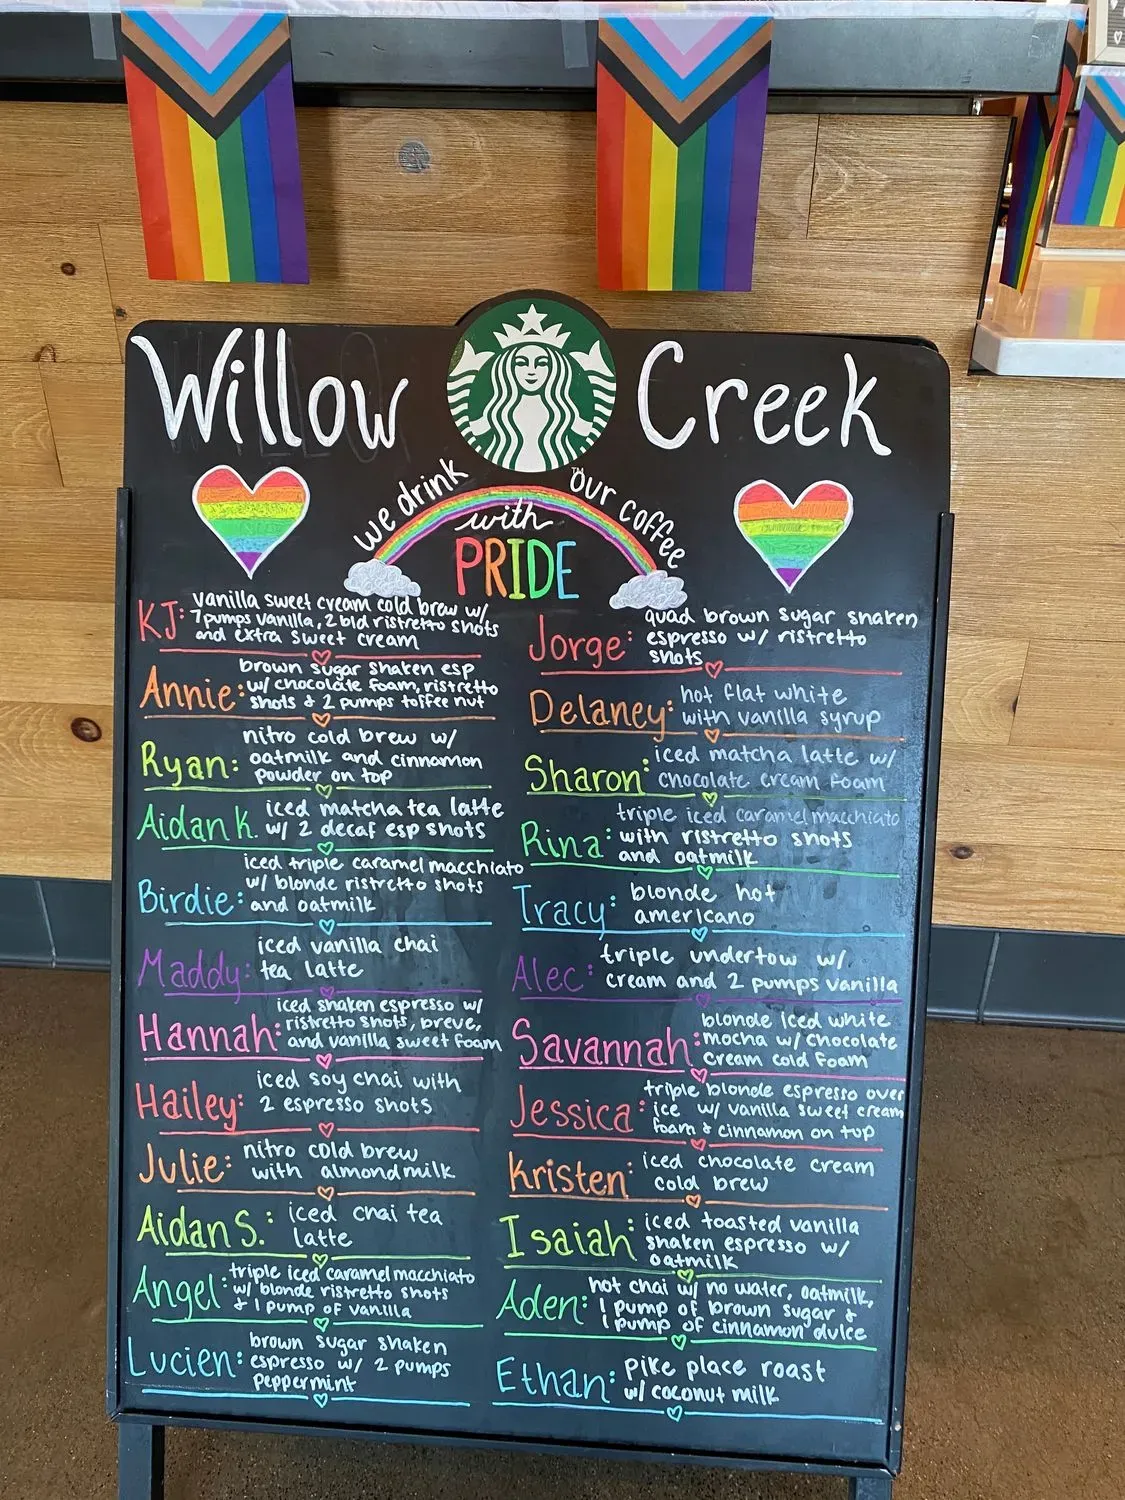 Willow Creek
we drink our coffee
with
PRIDE
KJ: vanilla sweet cream cold brew w/
7 pumps vanilla, 2 bld ristretto shots
and extra sweet cream
Annie: brown sugar shaken esp
w/ chocolate foam, ristretto
shots & 2 pumps toffee nut
Ryan: nitro cold brew w/
oatmilk and cinnamon
powder on top
Aidan K. iced matcha tea latte
w/ 2 decaf esp shots
Birdie: iced triple caramel macchiato
w/ blonde ristretto shots
and oatmilk
Maddy: iced vanilla chai
tea latte
Hannah: iced shaken espresso w/
ristretto shots, breve,
and vanilla sweet foam
Hailey: iced soy chai with
2 espresso shots
Julie: nitro cold brew
with almondmilk
Aidan S.: iced chai tea
latte
Angel: triple iced caramel macchiato
w/ blonde ristretto shots
& 1 pump of vanilla
Lucien: brown sugar shaken
espresso w/ 2 pumps
peppermint
Jorge: quad brown sugar shaken
espresso w/ ristretto
shots
Delaney: hot flat white
with vanilla syrup
Sharon: iced matcha latte w/
chocolate cream foam
Rina: triple iced caramel macchiato
with ristretto shots
and oatmilk
Tracy: blonde hot
americano
Alec: triple undertow w/
cream and 2 pumps vanilla
Savannah: blonde iced white
mocha w/ chocolate
cream cold foam
Jessica: triple blonde espresso over
ice w/ vanilla sweet cream
foam & cinnamon on top
Kristen: iced chocolate cream
cold brew
Isaiah: iced toasted vanilla
shaken espresso w/
oatmilk
Aden: hot chai w/ no water, oatmilk,
1 pump of brown sugar &
1 pump of cinnamon dulce
Ethan: pike place roast
w/ coconut milk